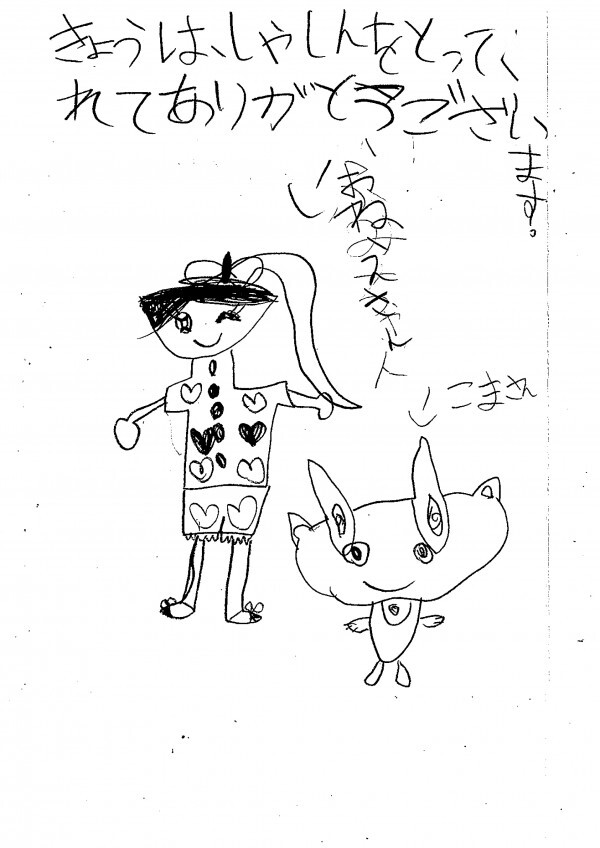 きょうは、しゃしんをとってく
れてありがとうござい
ます。
こまさん